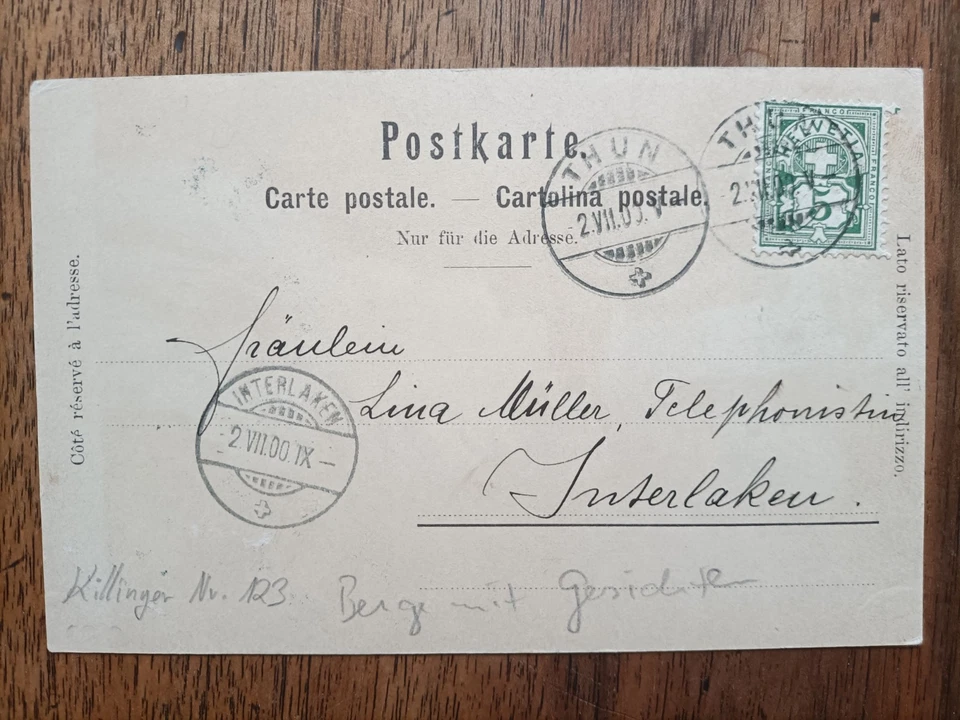 Postkarte.
Carte postale. — Cartolina postale.
Nur für die Adresse.
THUN
2.VII.00. V
THUN
FRANCO
HELVETIA
FRANCO
5
Côté réservé à l'adresse.
Lato riservato all' indirizzo.
Fräulein
Lina Müller, Telephonistin
Interlaken.
INTERLAKEN
2.VII.00.IX –
Killinger Nr. 123
Berge mit Gesichtern